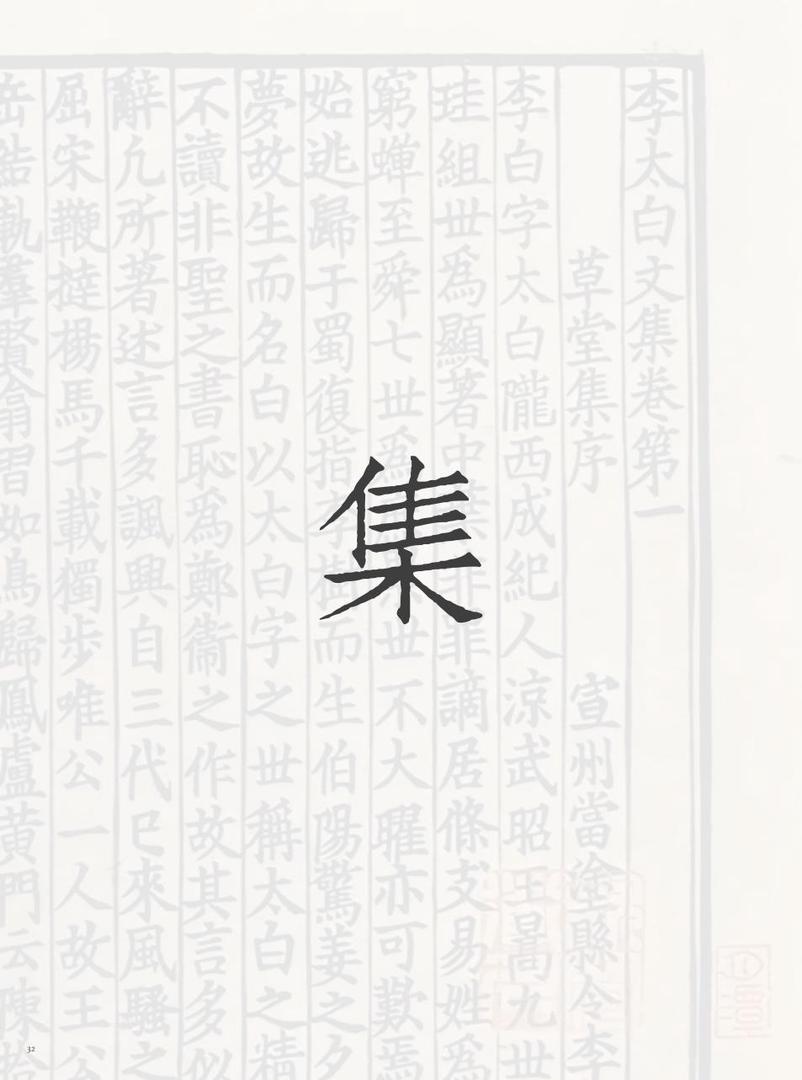 李太白文集卷第一
草堂集序 宣州當塗縣令李
李白字太白隴西成紀人涼武昭王暠九丗
珪組丗爲顯著中非謫居條支易姓爲
窮蟬至舜七丗丗不大曜亦可歎焉
始逃歸于蜀復指而生伯陽驚姜之夕
夢故生而名白以太白字之丗稱太白之精
不讀非聖之書恥爲鄭衞之作故其言多似
辭凢所著述言多諷興自三代已來風騷之
屈宋鞭撻楊馬千載獨步唯公一人故王公
岳結軌羣賢翕習如鳥歸鳳盧黃門云陳拾
集
32